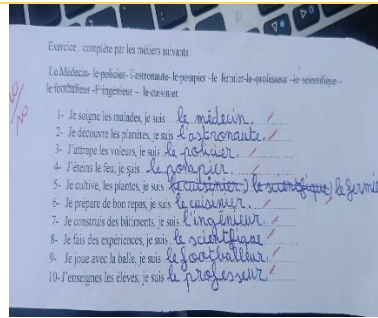 Exercice : complète par les métiers suivants
Le Médecin- le policier- l'astronaute- le pompier -le fermier-le professeur -le scientifique -
le footballeur -l'ingénieur – le cuisinier.
1- Je soigne les malades, je suis le médecin.
2- Je découvre les planètes, je suis l'astronaute.
3- J'attrape les voleurs, je suis le policier.
4- J'éteins le feu, je suis le pompier.
5- Je cultive, les plantes, je suis (le cuisinier) (le scientifique) le fermier
6- Je prépare de bon repas, je suis le cuisinier.
7- Je construis des bâtiments, je suis l'ingénieur.
8- Je fais des expériences, je suis le scientifique
9- Je joue avec la balle, je suis le footballeur.
10- J'enseignes les élèves, je suis le professeur.